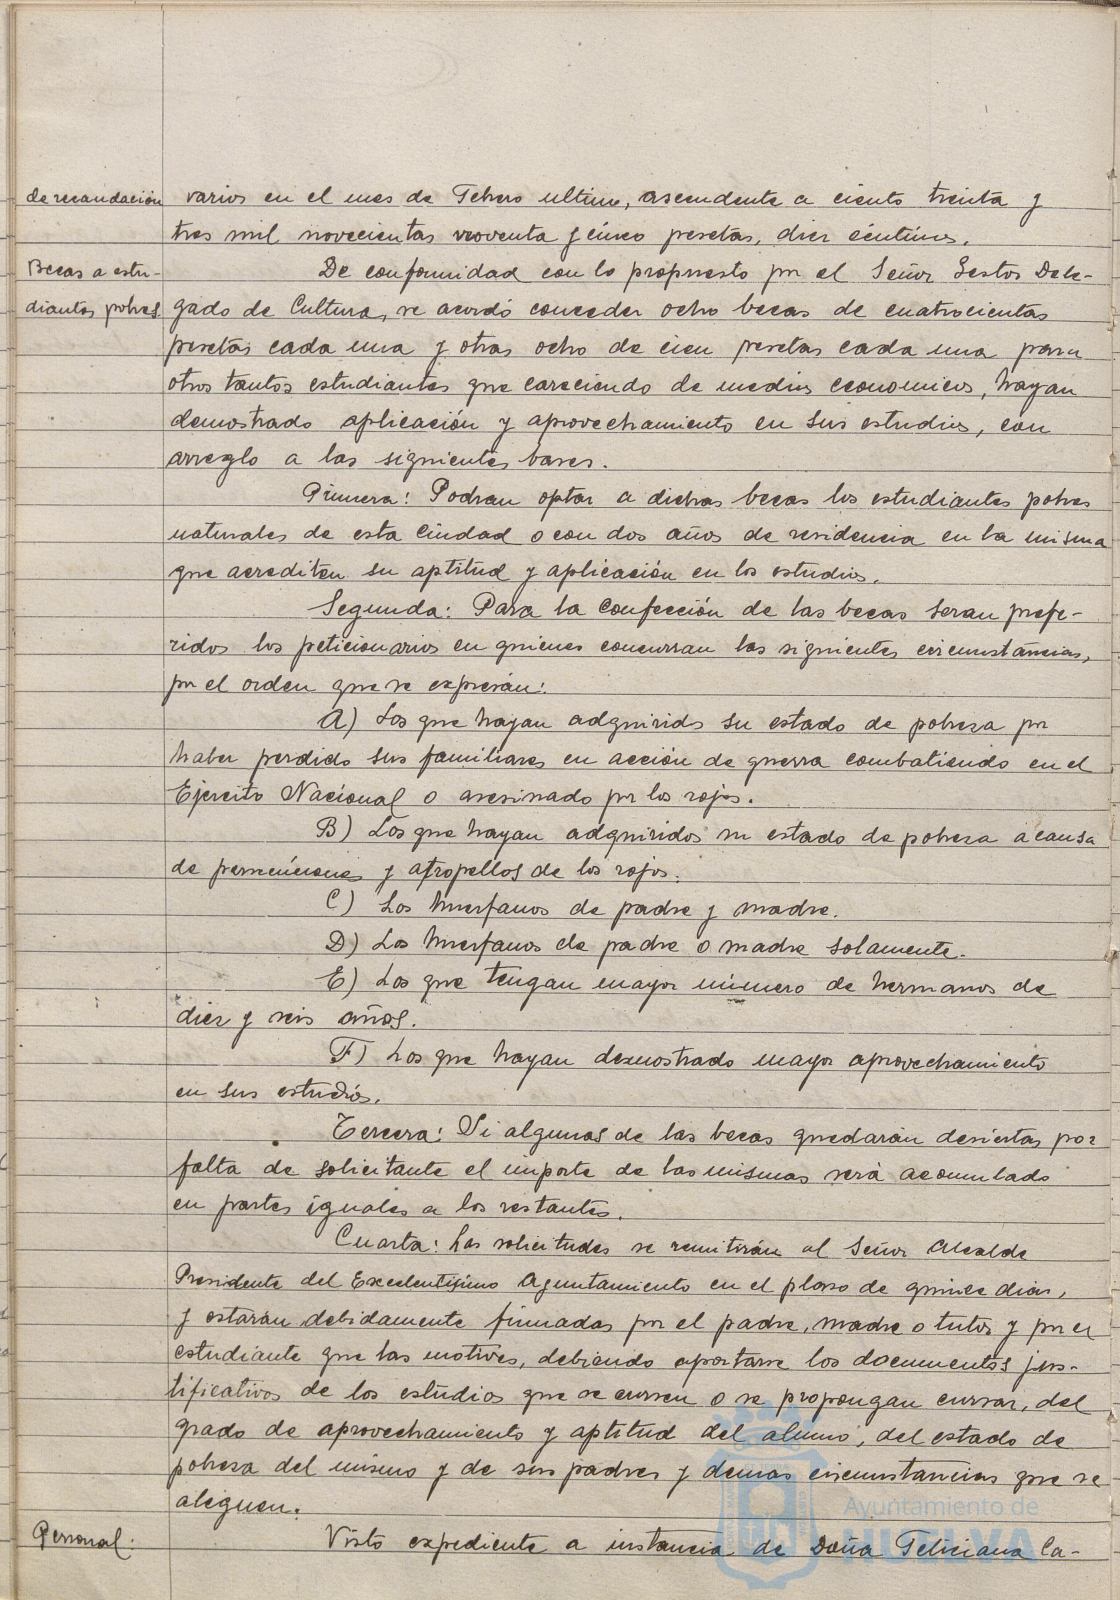 de recaudación
varios en el mes de Febrero ultimo, ascendente a ciento treinta y
tres mil novecientas noventa y cinco pesetas, diez centimos.
Becas a estu-
diantes pobres
De conformidad con lo propuesto por el Señor Gestor Dele-
gado de Cultura, se acordó conceder ocho becas de cuatrocientas
pesetas cada una y otras ocho de cien pesetas cada una para
otros tantos estudiantes que careciendo de medios economicos, hayan
demostrado aplicación y aprovechamiento en sus estudios, con
arreglo a las siguientes bases.
Primera: Podran optar a dichas becas los estudiantes pobres
naturales de esta Ciudad o con dos años de residencia en la misma
que acrediten su aptitud y aplicación en los estudios.
Segunda: Para la confección de las becas seran prefe-
ridos los peticionarios en quienes concurran las siguientes circunstancias,
por el orden que se expresan:
A) Los que hayan adquirido su estado de pobreza por
haber perdido sus familiares en acción de guerra combatiendo en el
Ejercito Nacional o asesinado por los rojos.
B) Los que hayan adquiridos su estado de pobreza a causa
de persecuciones y atropellos de los rojos.
C) Los huerfanos de padre y madre.
D) Los huerfanos de padre o madre solamente.
E) Los que tengan mayor número de hermanos de
diez y seis años.
F) Los que hayan demostrado mayor aprovechamiento
en sus estudios.
Tercera: Si algunas de las becas quedarán desiertas por
falta de solicitante el importe de las mismas será acumulado
en partes iguales a los restantes.
Cuarta: Las solicitudes se remitirán al Señor Alcalde
Presidente del Excelentisimo Ayuntamiento en el plazo de quince dias,
y estarán debidamente firmadas por el padre, madre o tutor y por el
estudiante que las motives, debiendo aportarse los documentos jus-
tificativos de los estudios que se cursen o se propongan cursar, del
grado de aprovechamiento y aptitud del alumno, del estado de
pobreza del mismo y de sus padres y demas circunstancias que se
aleguen.
Personal.
Visto expediente a instancia de Doña Feliciana Ca-
Ayuntamiento de
HUELVA